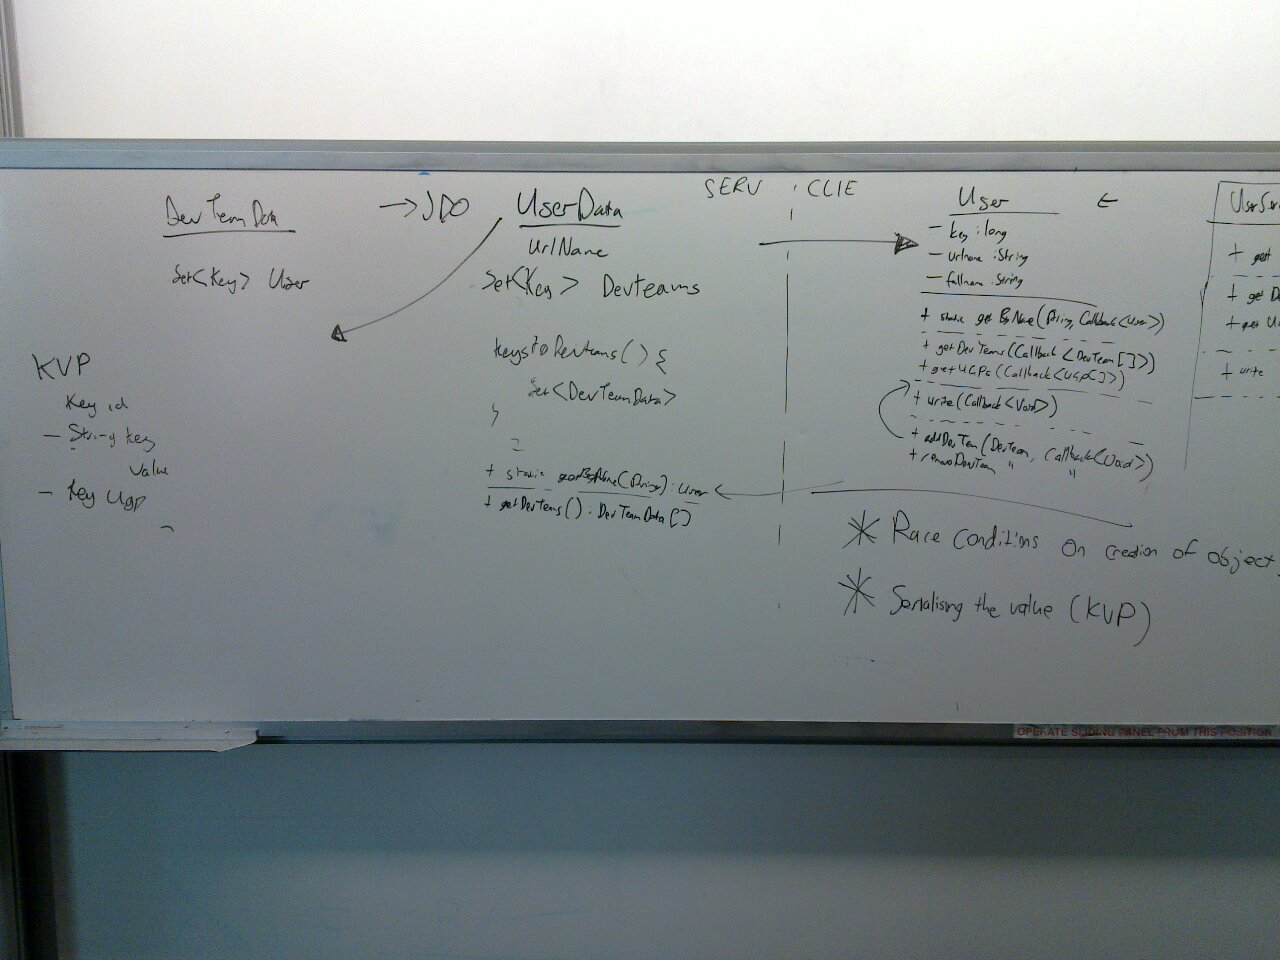 DevTeamData
Set<Key> User
KVP
Key id
- String key
value
- Key Ugp
→ JDO
UserData
UrlName
Set<Key> Devteams
keystoDevteams() {
Set<DevTeamData>
}
+ static getByName(String): User
+ getDevTeams(): DevTeamData[]
SERV | CLIE
User
- key : long
- urlname : String
- fullname : String
+ static getByName(String, Callback<User>)
+ getDevTeams(Callback<DevTeam[]>)
+ getUGPs(Callback<UGP[]>)
+ write(Callback<Void>)
+ addDevTeam(DevTeam, Callback<Void>)
+ removeDevTeam " "
* Race conditions on creation of object
* Serialising the value (KVP)
+ get
+ get De
+ get U
+ write
OPERATE SLIDING PANEL FROM THIS POSITION